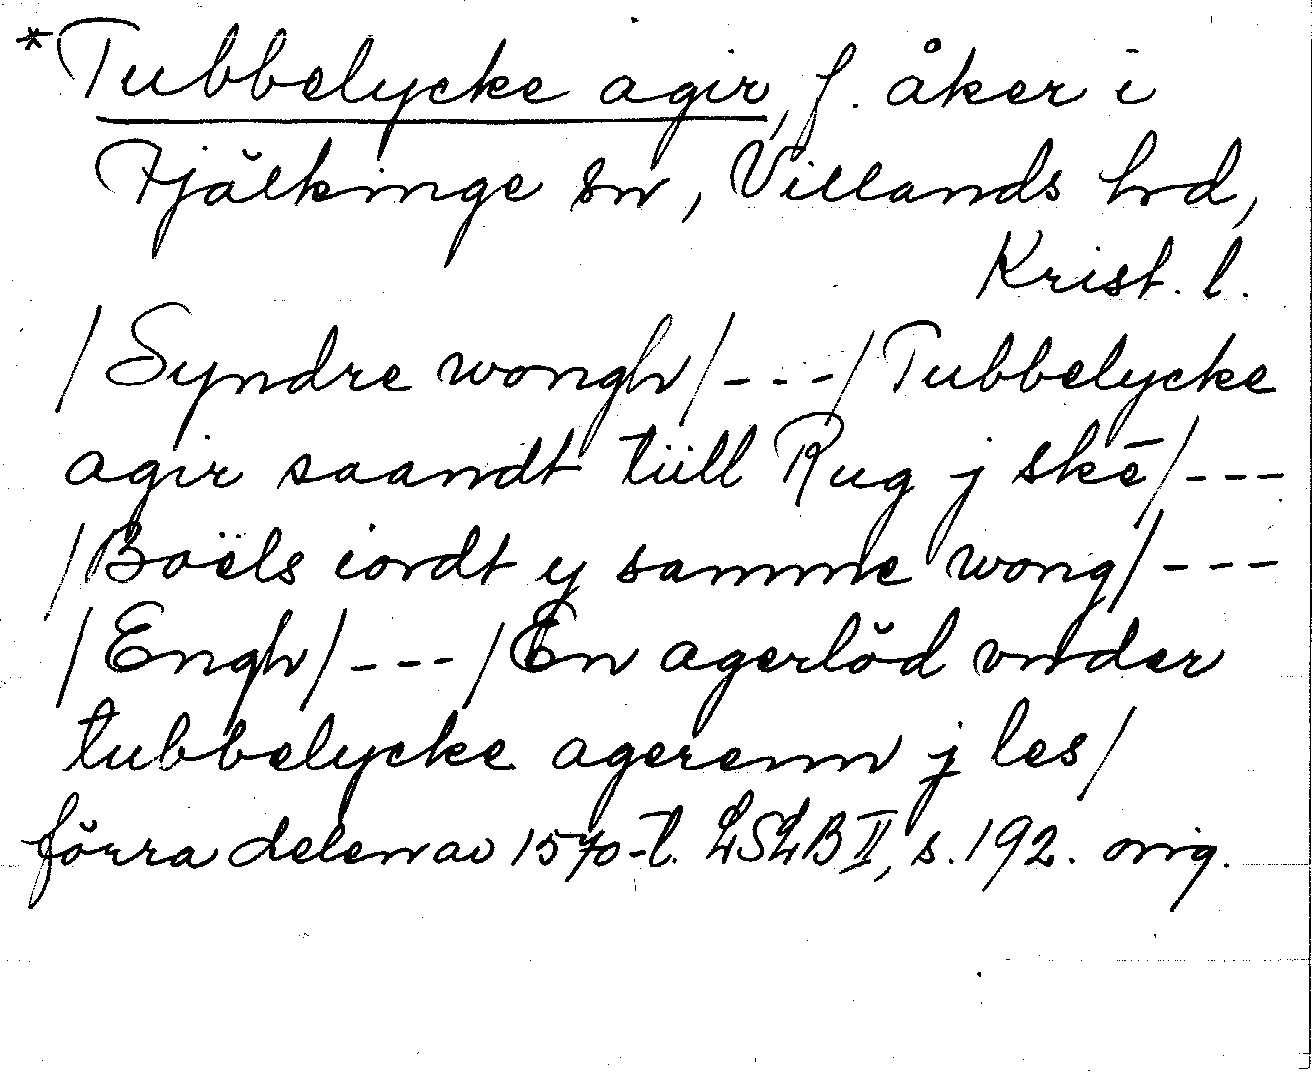 *Tubbelycke agir, f. åker i
Fjälkinge sn, Villands hrd,
Krist. l.
/Syndre wongh/---/Tubbelycke
agir saandt tiill Rug j skē/---
/Boëls iordt y samme wong/---
/Engh/---/En agerlöd vnder
tubbelycke agerenn j les/
förra delen av 1570-t. LSLB II, s. 192. orig.